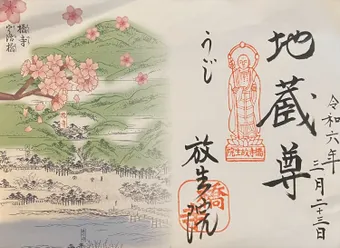 令和六年
三月二十三日
地蔵尊
橋寺放生院
うじ
放生院
橋寺
宇治橋